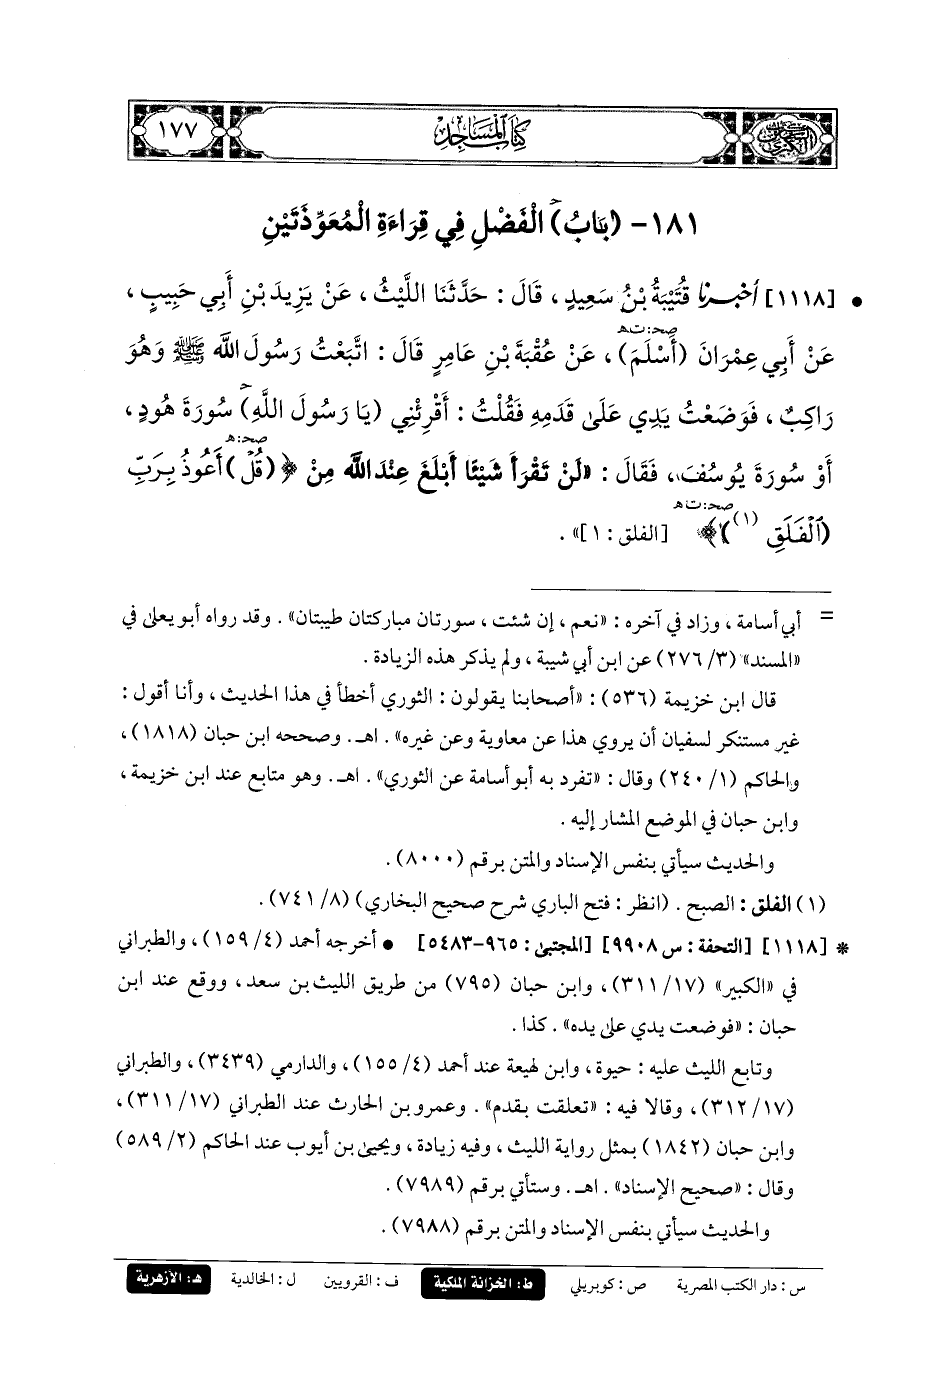 كتاب المساجد
١٧٧
١٨١- (بَابُ) الْفَضْلِ فِي قِرَاءَةِ الْمُعَوِّذَتَيْنِ
• [١١١٨] أخبرنا قُتَيْبَةُ بْنُ سَعِيدٍ، قَالَ: حَدَّثَنَا اللَّيْثُ، عَنْ يَزِيدَ بْنِ أَبِي حَبِيبٍ،
صحـ: ت هـ
عَنْ أَبِي عِمْرَانَ (أَسْلَمَ)، عَنْ عُقْبَةَ بْنِ عَامِرٍ قَالَ: اتَّبَعْتُ رَسُولَ اللَّه ﷺ وَهُوَ
رَاكِبٌ، فَوَضَعْتُ يَدِي عَلَى قَدَمِهِ فَقُلْتُ: أَقْرِئْنِي (يَا رَسُولَ اللَّهِ) سُورَةَ هُودٍ،
صحـ: هـ
أَوْ سُورَةَ يُوسُفَ، فَقَالَ: «لَنْ تَقْرَأَ شَيْئًا أَبْلَغَ عِنْدَ اللَّه مِنْ ﴿(قُلْ) أَعُوذُ بِرَبِّ
صحـ: ت هـ
(ٱلْفَلَقِ (١))﴾ [الفلق: ١]».
= أبي أسامة، وزاد في آخره: «نعم، إن شئت، سورتان مباركتان طيبتان». وقد رواه أبو يعلى في
«المسند» (٣/ ٢٧٦) عن ابن أبي شيبة، ولم يذكر هذه الزيادة.
قال ابن خزيمة (٥٣٦): «أصحابنا يقولون: الثوري أخطأ في هذا الحديث، وأنا أقول:
غير مستنكر لسفيان أن يروي هذا عن معاوية وعن غيره». اهـ. وصححه ابن حبان (١٨١٨)،
والحاكم (١/ ٢٤٠) وقال: «تفرد به أبو أسامة عن الثوري». اهـ. وهو متابع عند ابن خزيمة،
وابن حبان في الموضع المشار إليه.
والحديث سيأتي بنفس الإسناد والمتن برقم (٨٠٠٠).
(١) الفلق: الصبح. (انظر: فتح الباري شرح صحيح البخاري) (٨/ ٧٤١).
* [١١١٨] [التحفة: س ٩٩٠٨] [المجتبى: ٩٦٥-٥٤٨٣] • أخرجه أحمد (٤/ ١٥٩)، والطبراني
في «الكبير» (١٧/ ٣١١)، وابن حبان (٧٩٥) من طريق الليث بن سعد، ووقع عند ابن
حبان: «فوضعت يدي على يده». كذا.
وتابع الليث عليه: حيوة، وابن لهيعة عند أحمد (٤/ ١٥٥)، والدارمي (٣٤٣٩)، والطبراني
(١٧/ ٣١٢)، وقالا فيه: «تعلقت بقدم». وعمرو بن الحارث عند الطبراني (١٧/ ٣١١)،
وابن حبان (١٨٤٢) بمثل رواية الليث، وفيه زيادة، ويحيى بن أيوب عند الحاكم (٢/ ٥٨٩)
وقال: «صحيح الإسناد». اهـ. وستأتي برقم (٧٩٨٩).
والحديث سيأتي بنفس الإسناد والمتن برقم (٧٩٨٨).
س: دار الكتب المصرية ص: كوبريلي ط: الخزانة الملكية ف: القرويين ل: الخالدية هـ: الأزهرية